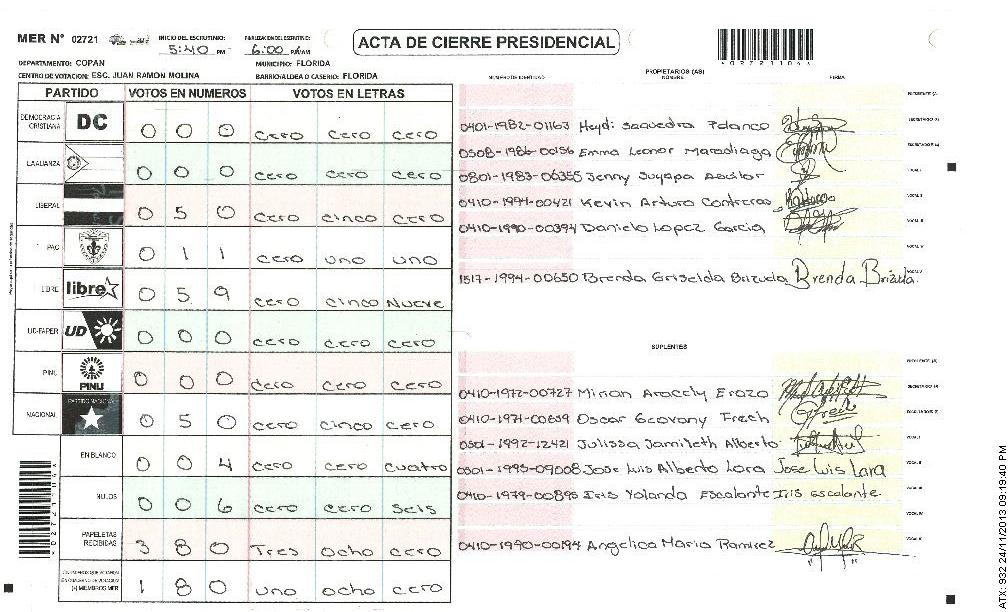 MER N° 02721
INICIO DEL ESCRUTINIO: 5:40 PM
FINALIZACION DEL ESCRUTINIO: 6:00
ACTA DE CIERRE PRESIDENCIAL
DEPARTAMENTO: COPAN
MUNICIPIO: FLORIDA
CENTRO DE VOTACION: ESC. JUAN RAMON MOLINA
BARRIO/ALDEA O CASERIO: FLORIDA
PARTIDO VOTOS EN NUMEROS VOTOS EN LETRAS
DEMOCRACIA CRISTIANA DC 0 0 0 cero cero cero
LA ALIANZA 0 0 0 cero cero cero
LIBERAL 0 5 0 cero cinco cero
PAC 0 1 1 cero uno uno
LIBRE libre 0 5 9 cero cinco Nueve
UD-FAPER UD 0 0 0 cero cero cero
PINU PINU 0 0 0 cero cero cero
NACIONAL PARTIDO NACIONAL 0 5 0 cero cinco cero
EN BLANCO 0 0 4 cero cero cuatro
NULOS 0 0 6 cero cero seis
PAPELETAS RECIBIDAS 3 8 0 Tres ocho cero
(+) MIEMBROS MER 1 8 0 uno ocho cero
PROPIETARIOS (AS)
NUMERO DE IDENTIDAD NOMBRE FIRMA
0401-1982-01163 Heydi Saavedra Polanco
0508-1986-00156 Emma Leonor Maradiaga
0801-1983-06355 Jenny Suyapa Aguilar
0410-1994-00421 Kevin Arturo Contreras
0410-1990-00394 Danielo Lopez Garcia
1517-1994-00650 Brenda Griselda Brizuela Brenda Brizuela
SUPLENTES
0410-1972-00727 Mirian Aracely Erazo
0410-1971-00659 Oscar Geovany Frech
0501-1992-12421 Julissa Jamileth Alberto
0501-1995-09008 Jose Luis Alberto Lara Jose Luis Lara
0410-1979-00895 Iris Yolanda Escalante Iris Escalante
0410-1990-00194 Angelica Maria Ramirez
ATX: 932 24/11/2013 09:19:40 PM